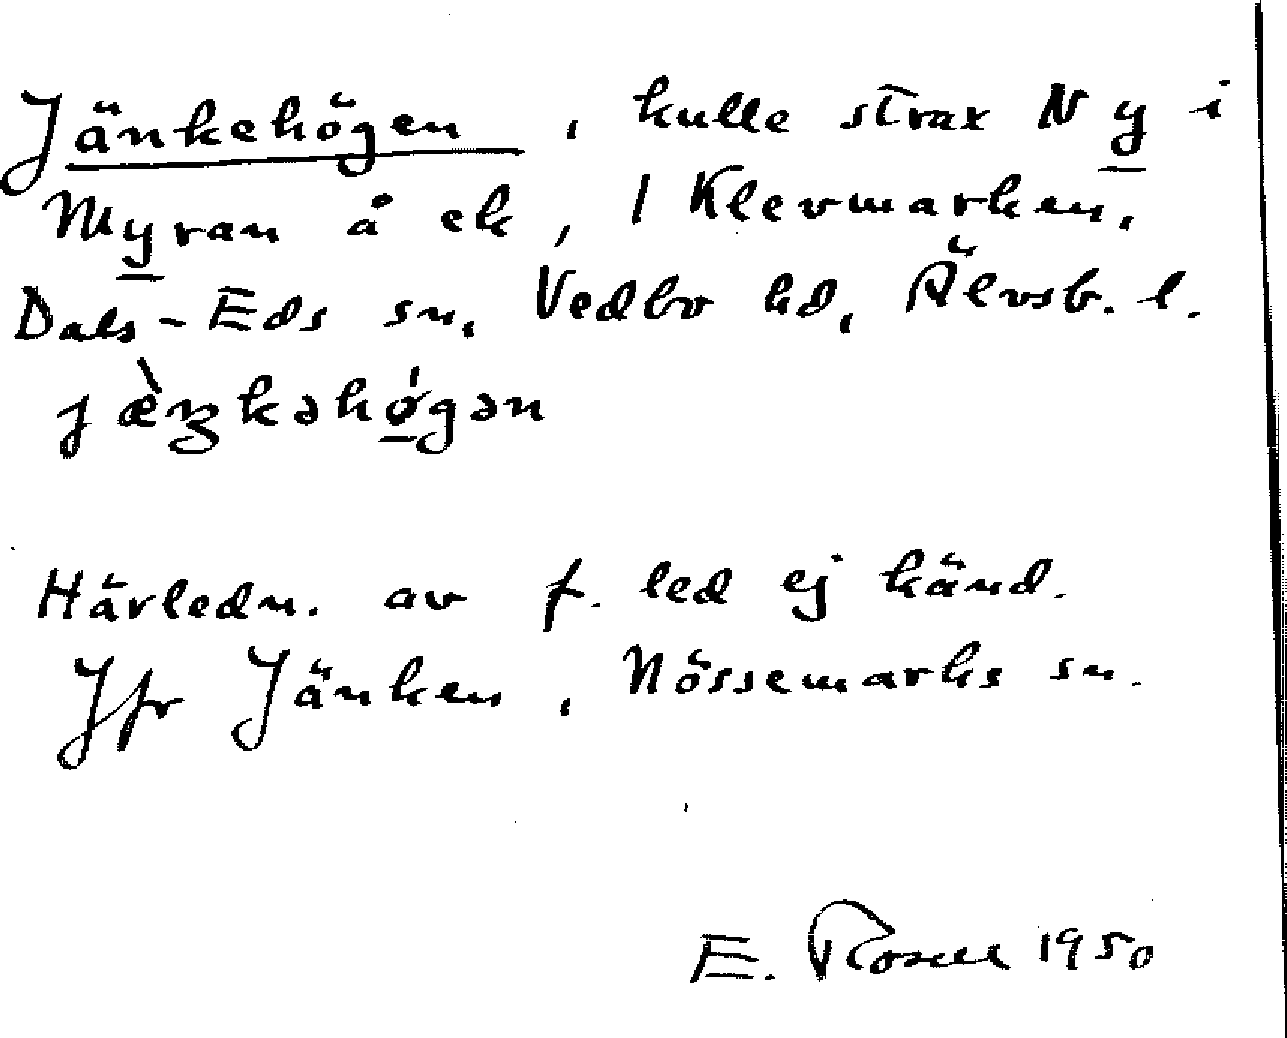 Jänkehögen, kulle strax N y i
Myran å ek, 1 Klevmarken,
Dals-Eds sn, Vedbo hd, Älvsb. l.
jæ̀ŋkəhø̀gən
Härledn. av f. led ej känd.
Jfr Jänken, Nössemarks sn.
E. Rosell 1950